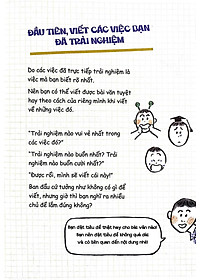 ĐẦU TIÊN, VIẾT CÁC VIỆC BẠN
ĐÃ TRẢI NGHIỆM
Do các việc đã trực tiếp trải nghiệm là
việc mà bạn biết rõ nhất.
Nên bạn có thể viết được bài văn tuyệt
hay theo cách của riêng mình khi viết
về những việc đó.
“Trải nghiệm nào vui vẻ nhất trong
các việc đó?”
“Trải nghiệm nào buồn nhất? Trải
nghiệm nào buồn cười nhất?”
“Được rồi, mình sẽ viết cái này!”
Ban đầu cứ tưởng như không có gì để
viết, nhưng giờ thì bạn nghĩ ra nhiều
chủ đề lắm đúng không?
Bạn đặt tiêu đề thật hay cho bài văn nào!
Bạn nên đặt tiêu đề không quá dài
và có liên quan đến nội dung nhé!